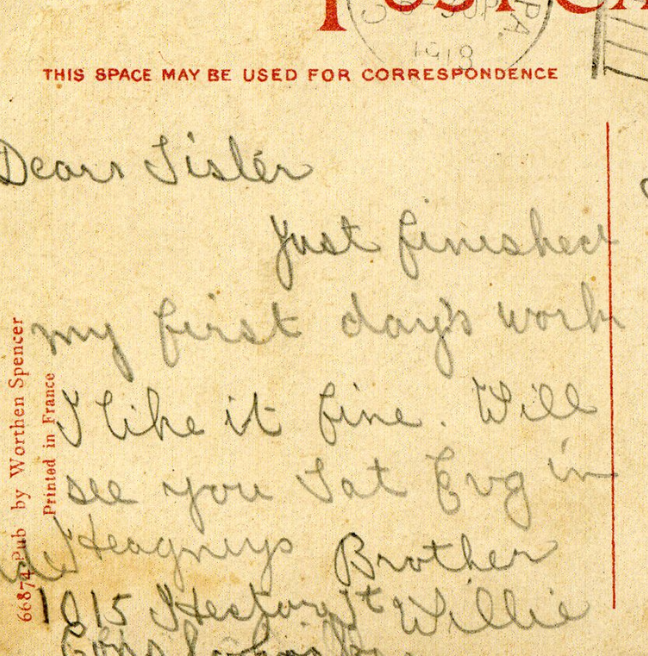 POST CA
PA.
1918
THIS SPACE MAY BE USED FOR CORRESPONDENCE
Dear Sister
Just finished
my first day's work
I like it fine. Will
see you Sat Evg in
Heagneys Brother
1015 Hector St Willie
66874 Pub by Worthen Spencer
Printed in France